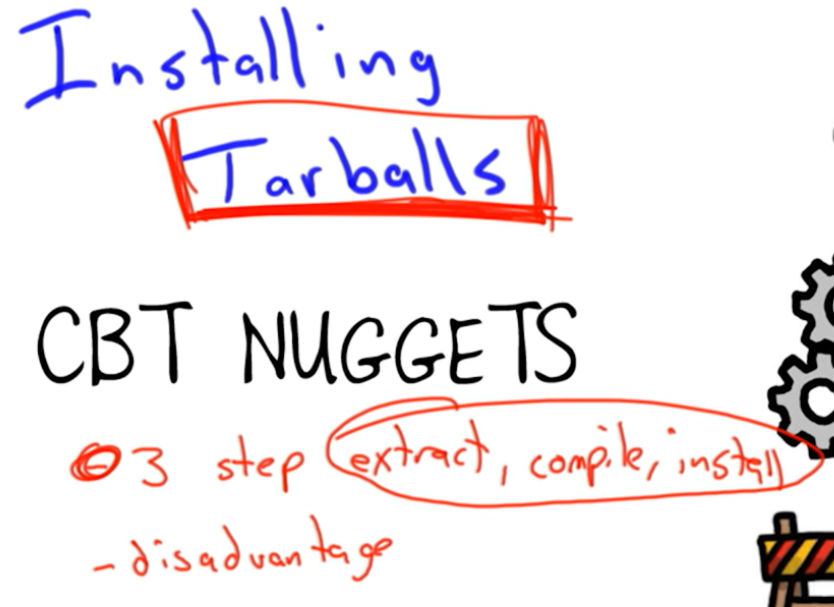 Installing
Tarballs
CBT NUGGETS
3 step extract, compile, install
- disadvantage